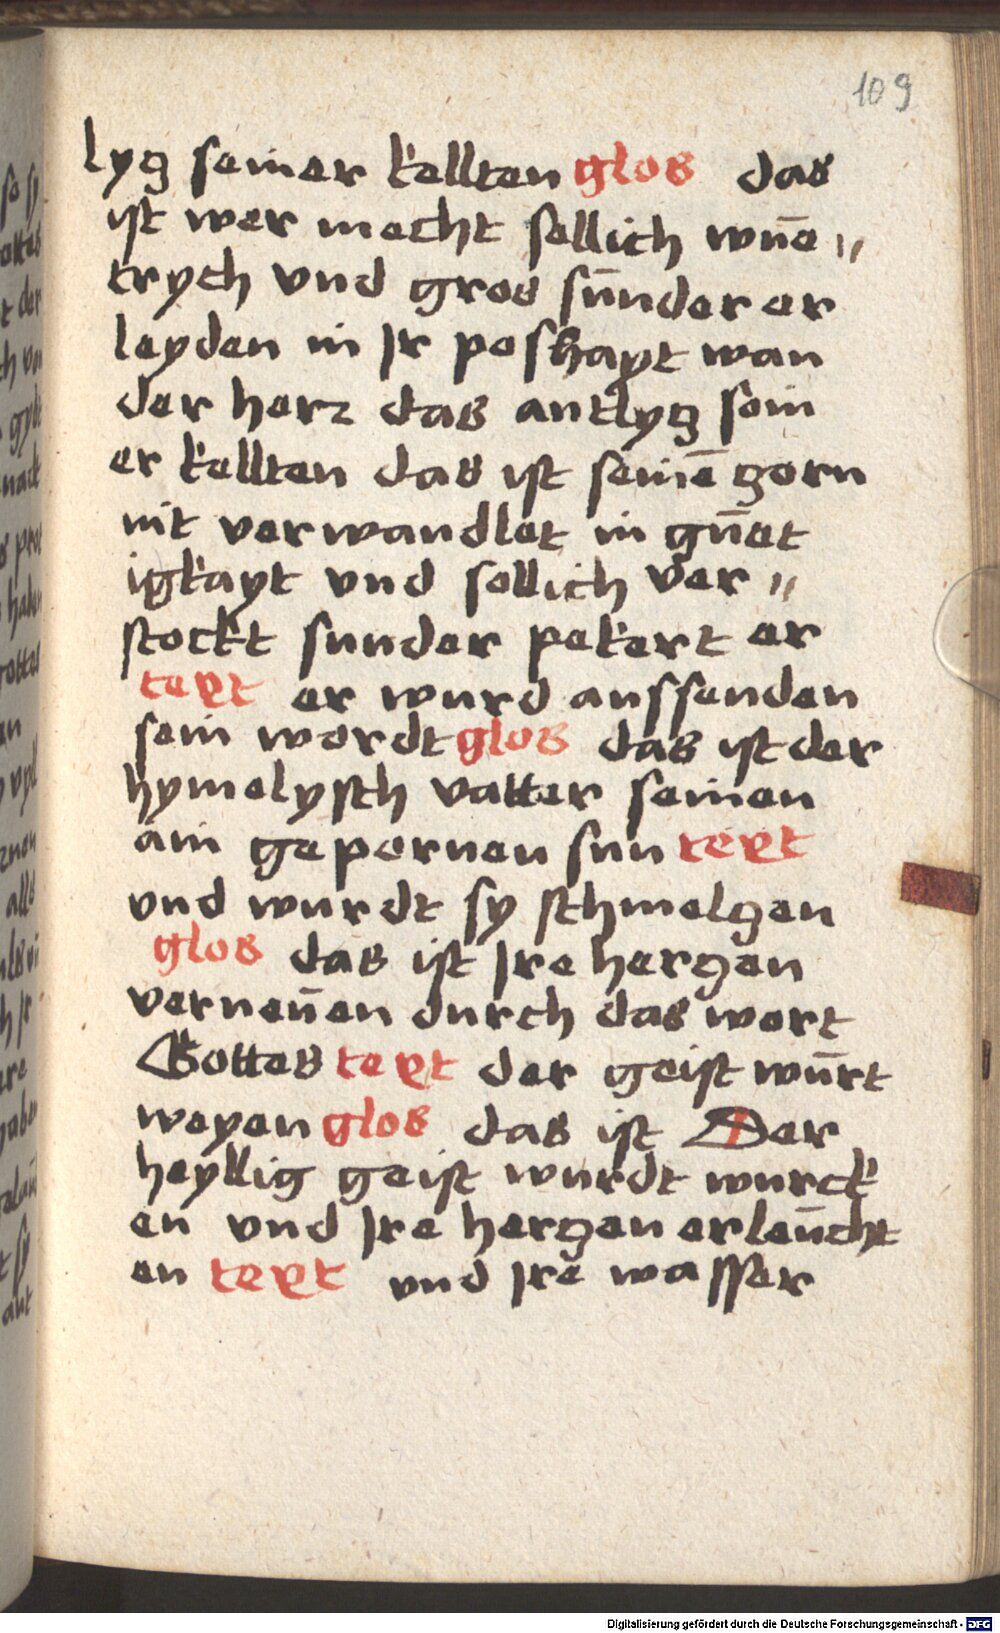 109
lyg seiner kellten glos das
ist wer mecht sellich wūe〃
trych vnd gros sūnder er
leyden in Jr poshayt wan
der herz das antlyg sein
er kellten das ist seinē zorn
nit verwandlet in gūet
igkayt vnd sellich ver〃
stockt sunder pekert er
text er wurd aussenden
sein wordt glos das ist der
hymelysch vatter seinen
ain gepornen sun text
vnd wurdt sy schmelzen
glos das ist Jre herzen
verneūen durch das wort
Gottes text der geist wūrt
weyen glos das ist Der
heyllig geist wurdt wurck
en vnd Jre herzen erleūcht
en text vnd Jre wasser
Digitalisierung gefördert durch die Deutsche Forschungsgemeinschaft - DFG